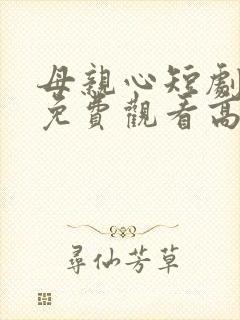 母親心短劇
免費觀看高
尋仙芳草